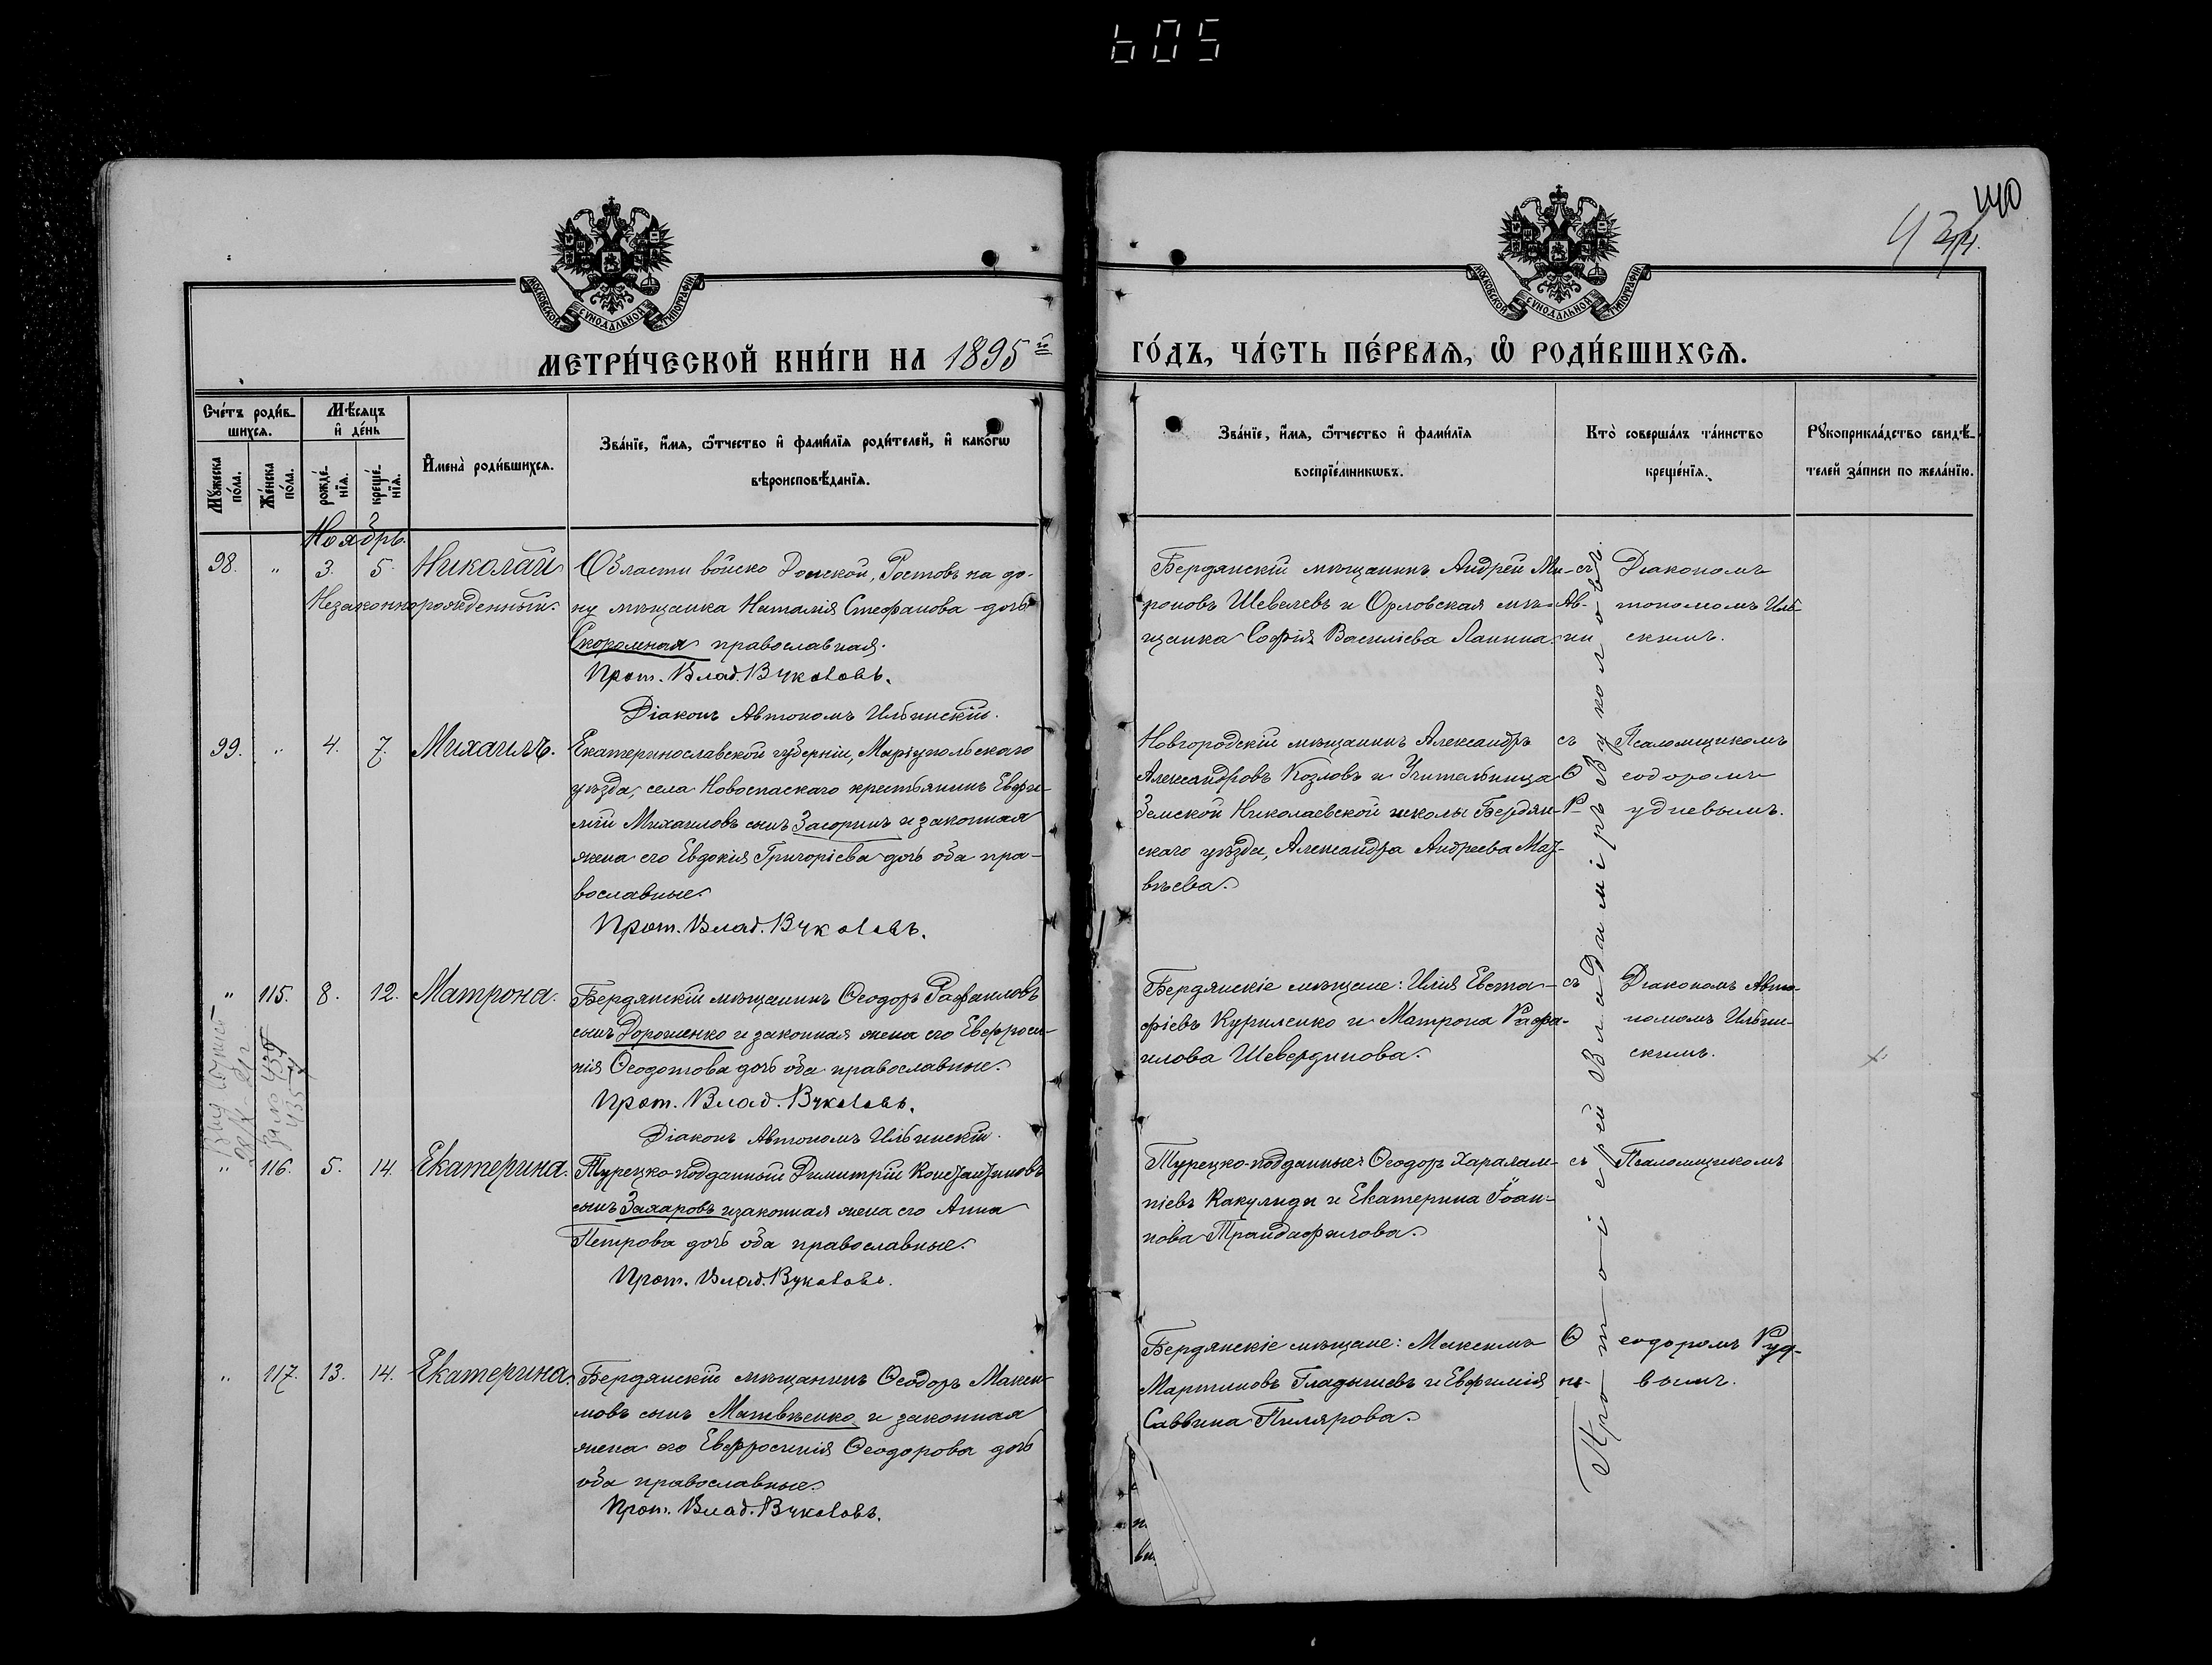 605
40
МОСКОВСКОЙ СѴНОДАЛЬНОЙ ТИПОГРАФІИ
МОСКОВСКОЙ СѴНОДАЛЬНОЙ ТИПОГРАФІИ
МЕТРИ́ЧЕСКОЙ КНИ́ГИ НА 1895й
ГО́ДЪ, ЧА́СТЬ ПЕ́РВАѦ, Ѡ РОДИ́ВШИХСѦ.
Сче́тъ роди́в-
шихсѧ.
Мꙋ́жеска по́ла.
Же́нска по́ла.
Мѣ́сѧцъ
и҆ де́нь
рожде́-нїѧ.
креще́-нїѧ.
И҆мена̀ роди́вшихсѧ.
Зва́нїе, и҆́мѧ, ѻ҆́тчество и҆ фами́лїѧ роди́телей, и҆ како́гѡ
вѣроисповѣ́данїѧ.
Зва́нїе, и҆́мѧ, ѻ҆́тчество и҆ фами́лїѧ
воспрїе́мникѡвъ.
Кто̀ соверша́лъ та́инство
креще́нїѧ.
Рꙋкоприкла́дство свидѣ́-
телей за́писи по жела́нїю.
Ноябрь.
98. " 3. 5. Николай
Незаконнорожденный.
Области войско Донской, Ростовъ на до-
ну мѣщанка Наталія Стефанова дочь
Скоромная православная.
Прот. Влад. Вуколовъ.
Діаконъ Автономъ Ильинскій.
Бердянскій мѣщанинъ Андрей Ми-
роновъ Шевелевъ и Орловская мѣ-
щанка Софія Василіева Лапина.
съ Діакономъ
Ав- тономомъ Иль-
ин скимъ.
99. " 4. 7. Михаилъ.
Екатеринославской губерніи, Маріупольскаго
уѣзда, села Новоспаскаго крестьянинъ Евфи-
мій Михаиловъ сынъ Засоринъ и законная
жена его Евдокія Григоріева дочь оба пра-
вославные.
Прот. Влад. Вуколовъ.
Новгородскій мѣщанинъ Александръ
Александровъ Козловъ и Учительница
Земской Николаевской школы Бердян-
скаго уѣзда, Александра Андреева Мат-
вѣева.
съ Псаломщикомъ
Ѳ еодоромъ
Р- удневымъ.
" 115. 8. 12. Матрона.
Бердянскій мѣщанинъ Ѳеодоръ Рафаиловъ
сынъ Дорошенко и законная жена его Евфроси-
нія Ѳеодотова дочь оба православные.
Прот. Влад. Вуколовъ.
Діаконъ Автономъ Ильинскій.
Бердянскіе мѣщане: Илія Евста-
фіевъ Куриленко и Матрона Рафа-
илова Шевердинова.
съ Діакономъ Авто-
номомъ Ильин-
скимъ.
" 116. 5. 14. Екатерина.
Турецко-подданный Димитрій Константиновъ
сынъ Захаровъ и законная жена его Анна
Петрова дочь оба православные.
Прот. Влад. Вуколовъ.
Турецко-подданные: Ѳеодоръ Харалам-
піевъ Какулиди и Екатерина Іоан-
нова Трандафилова.
съ Псаломщикомъ
Ѳ еодоромъ Руд-
не- вымъ.
" 117. 13. 14. Екатерина.
Бердянскій мѣщанинъ Ѳеодоръ Макси-
мовъ сынъ Матвѣенко и законная
жена его Евфросинія Ѳеодорова дочь
оба православные.
Прот. Влад. Вуколовъ.
Бердянскіе мѣщане: Максимъ
Мартиновъ Гладышевъ и Евфимія
Саввина Пилярова.
Протоіерей Владиміръ Вуколовъ.